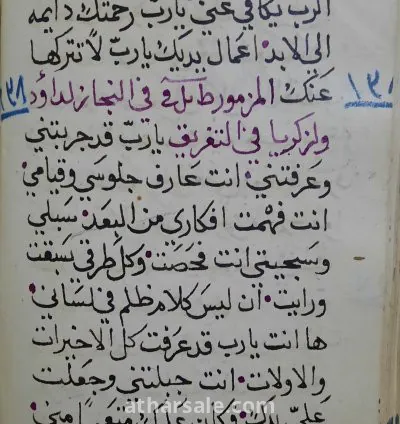 الرب يكافي عني يارب رحمتك دايمه
الى الابد اعمال يديك يارب لا تتركها
عنك المزمور طـ قلح في النجاز لداود
ولزكريا في التفريق يارب قد جربتني
وعرفتني انت عارف جلوسي وقيامي
انت فهمت افكاري من البعد سبلي
وسجيتي انت فحصت وكل طرقي سبقت
ورايت ان ليس كلام ظلم في لساني
ها انت يارب قد عرفت كل الاخيرات
والاولات انت جبلتني وجعلت
علي يدك
atharsale.com